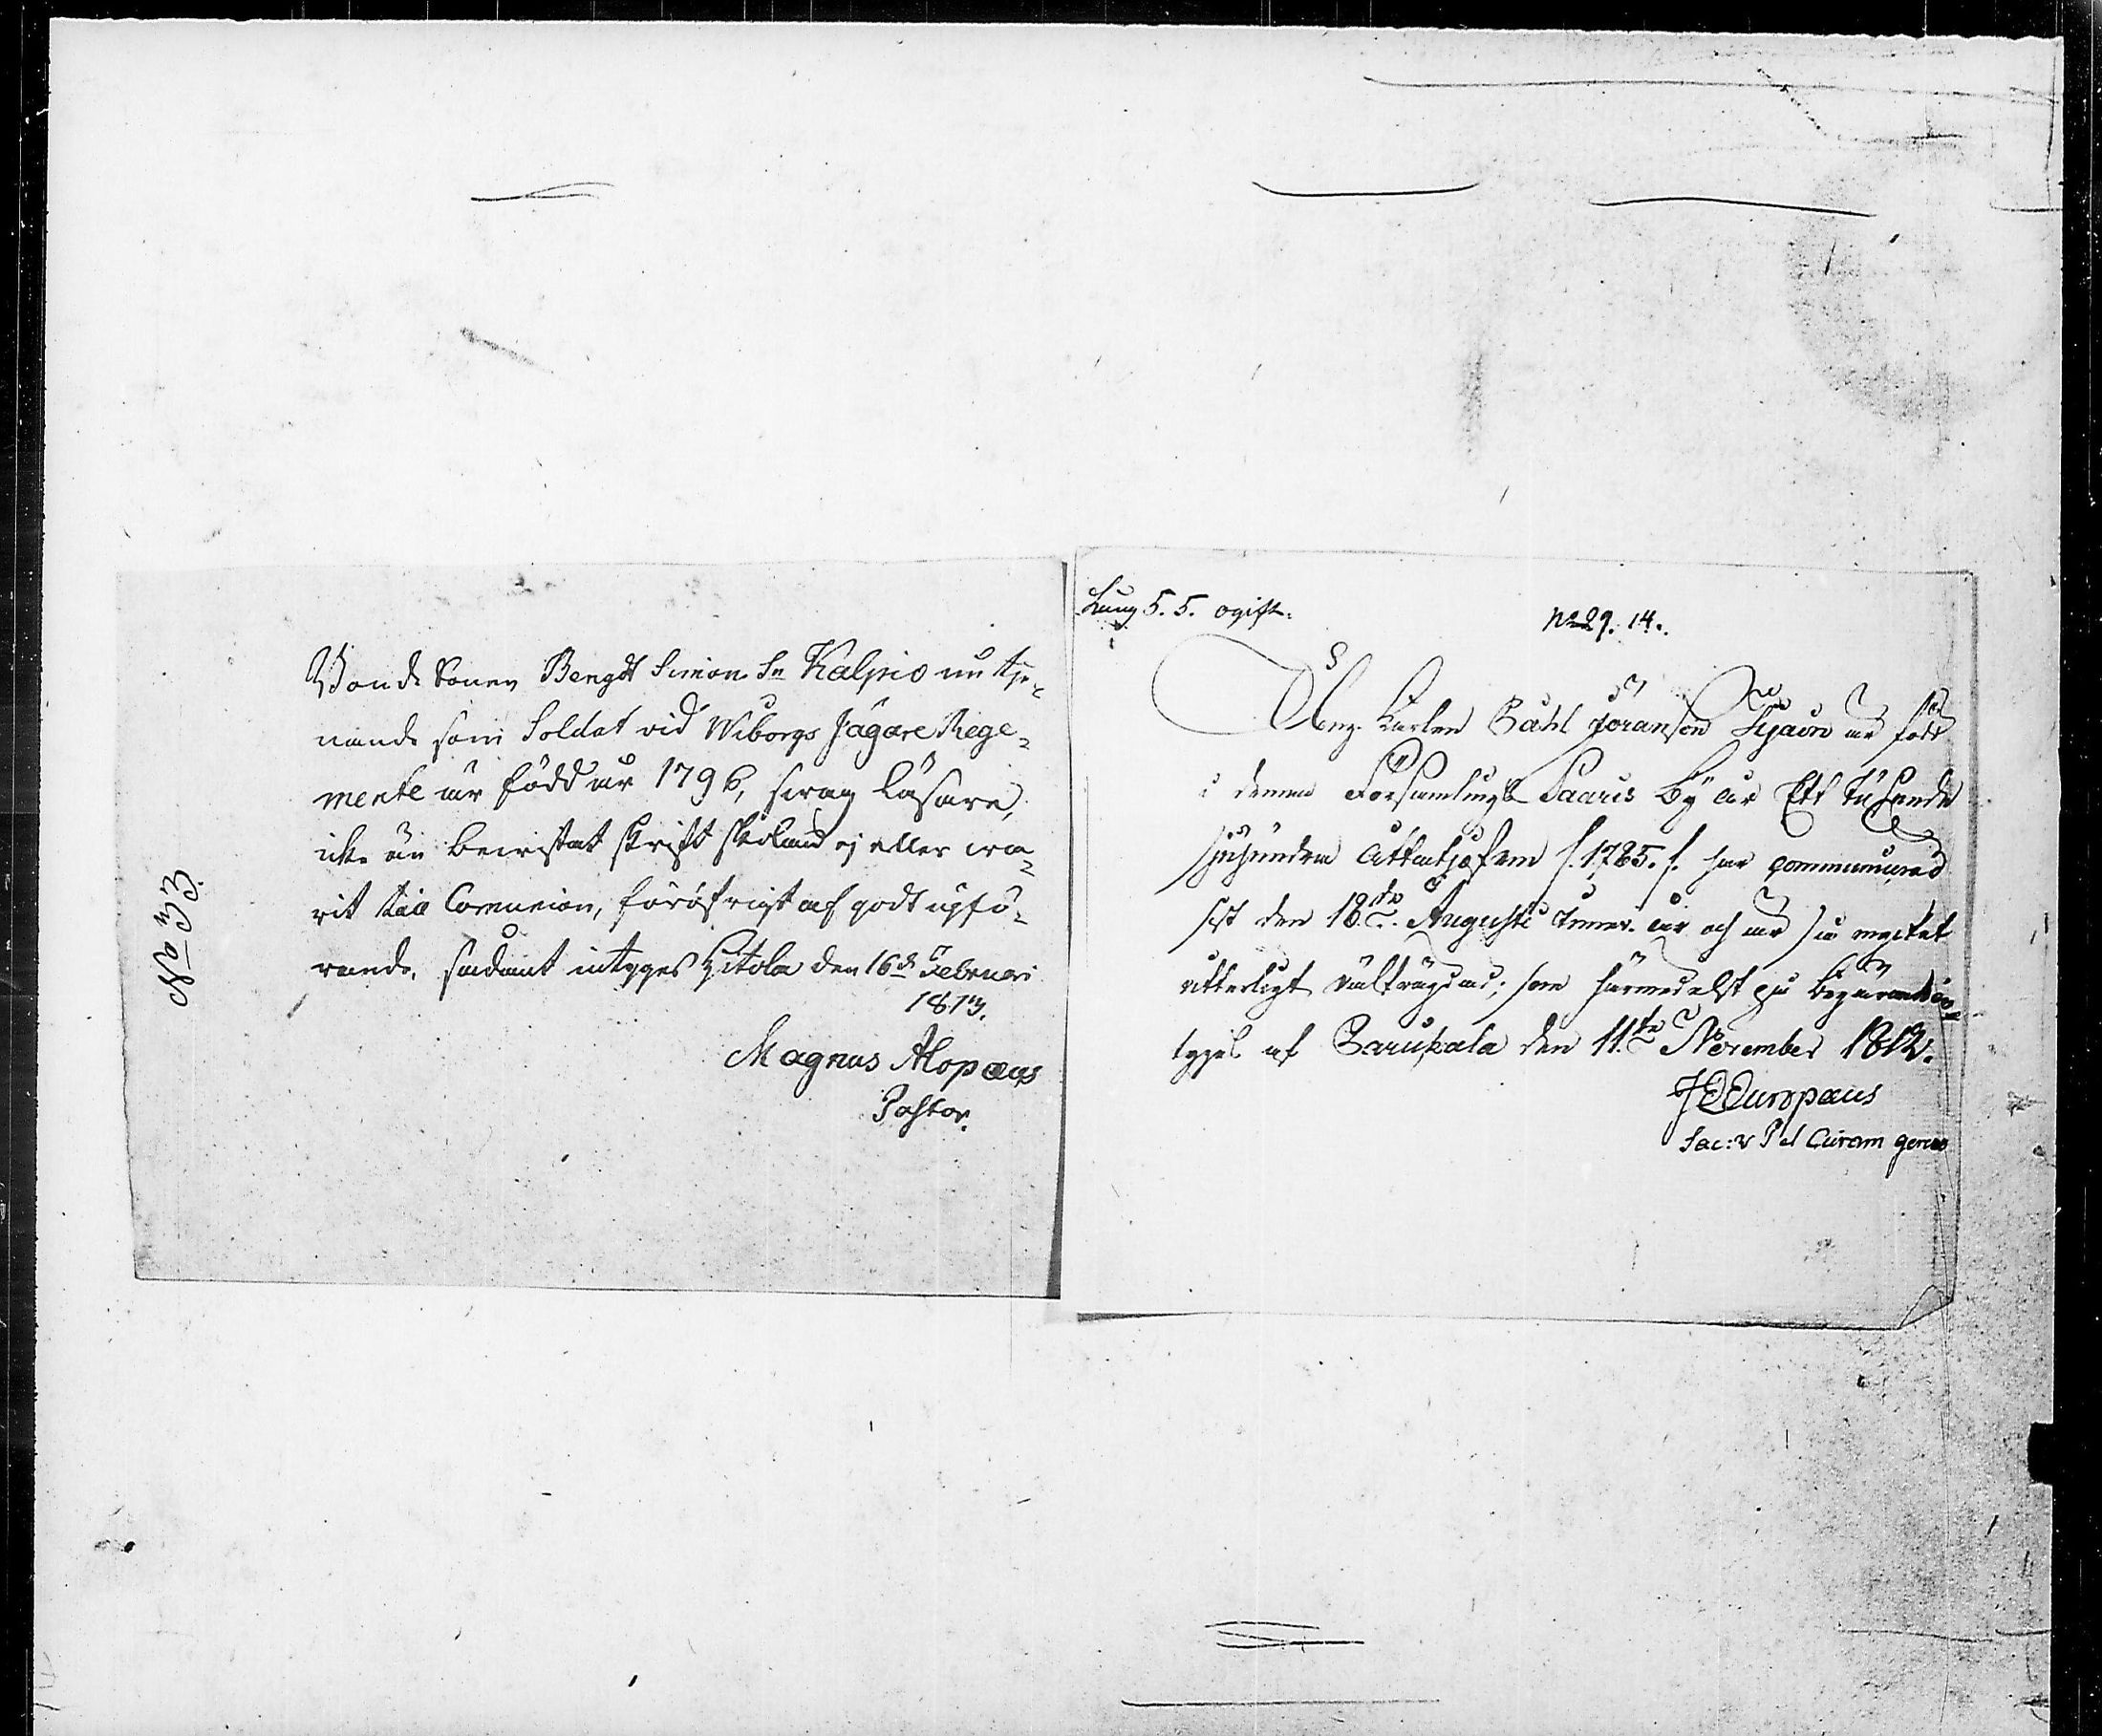 No 33.
Bonde Sonen Bengdt Simon Sn Kalpio nu tje-
nande som Soldat vid Wiborgs Jägare Rege-
mente är född år 1796, swag läsare,
icke än bewistat skriftskolan ej eller wa-
rit till Comunion, föröfrigt af godt upfö-
rande, sådant intyges Hitola den 16de Februari
1813.
Magnus Alopæus
Pastor.
Lång 5. 5. ogift.
No 29. 14.
Drng. Karlen Påhl Jöransson är född
i denna Församlings Saaris by år Ett tusende
sjuhundra åttatjofem /:1785.:/ har communicerad
sist den 18de Augusti inner. år och är så mycket
utterligt välfrägdad; som härmedelst på begäran in-
tyges af Parikala den 11te November 1812.
J Europæus
Sac: v P et Curam gerens